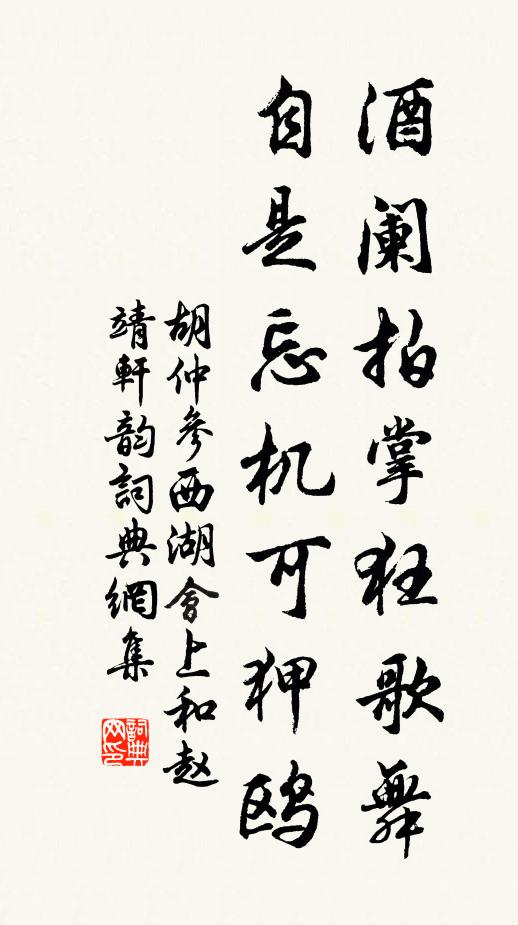 酒阑拍掌狂歌舞
自是忘机可狎鸥
胡仲參西湖會上和赵
靖軒韵詞典網集
詞典
网印